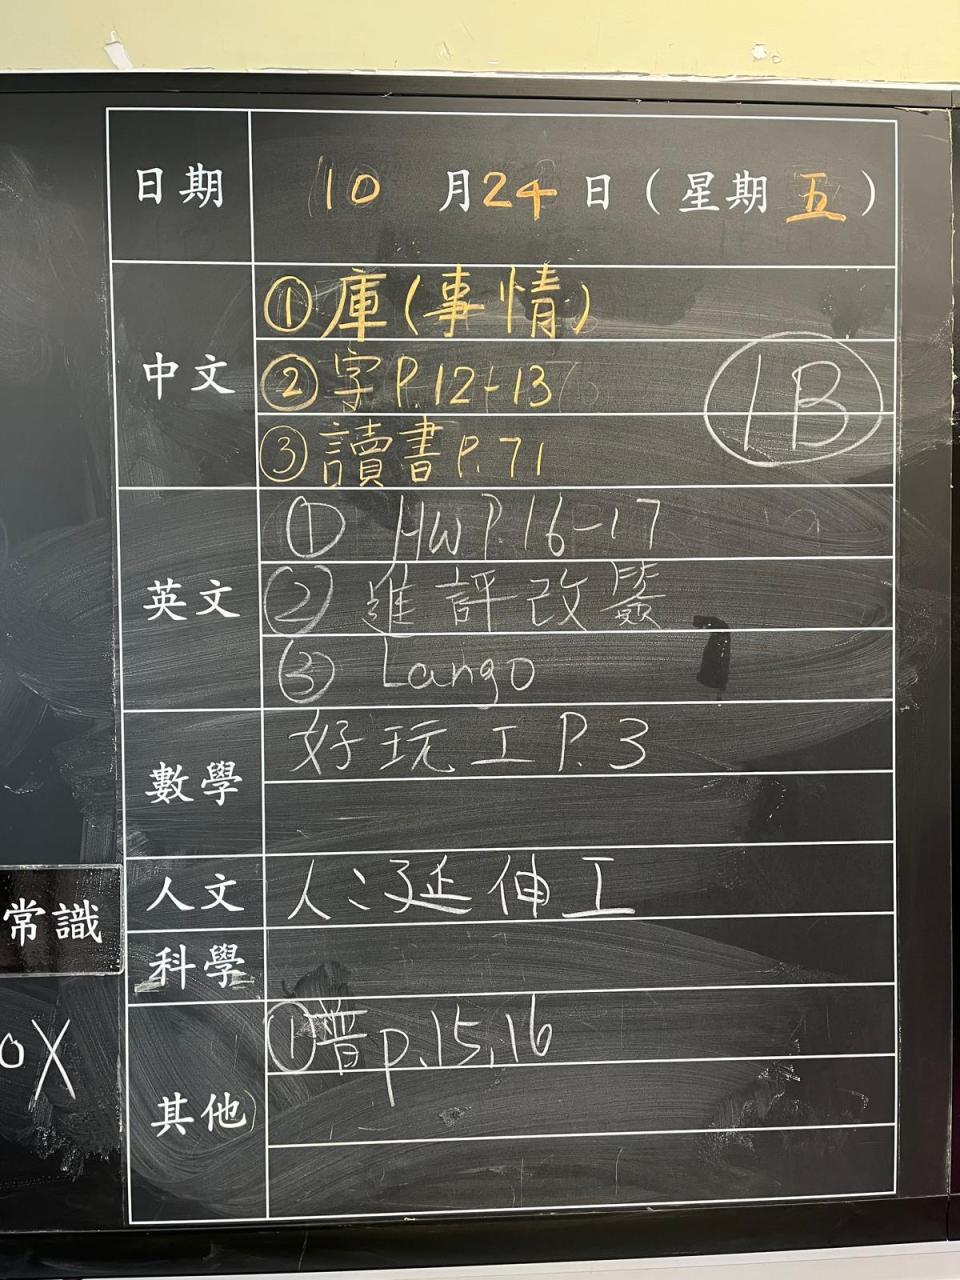 日期 10 月 24 日 ( 星期 五 )
中文
① 庫 (事情)
② 字 P. 12-13
③ 讀書 P. 71
1B
英文
① HW P. 16-17
② 進評改
③ Lango
數學
好玩工 P. 3
人文
人:延伸工
常識
科學
其他
① 普 p. 15, 16
OX